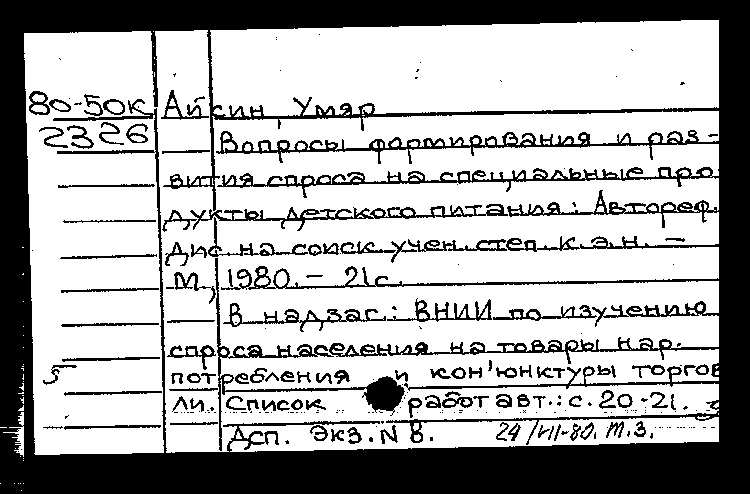 80-50К Айсин, Умяр
2326 Вопросы формирования и раз-
вития спроса на специальные про
дукты детского питания: Автореф.
дис. на соиск. учен. степ. к.э.н. –
М., 1980. – 21 с.
В надзаг.: ВНИИ по изучению
спроса населения на товары нар.
5 потребления и кон'юнктуры торгов
ли. Список работ авт.: с. 20-21.
Дсп. Экз. N 8. 24/VII-80. т.з.